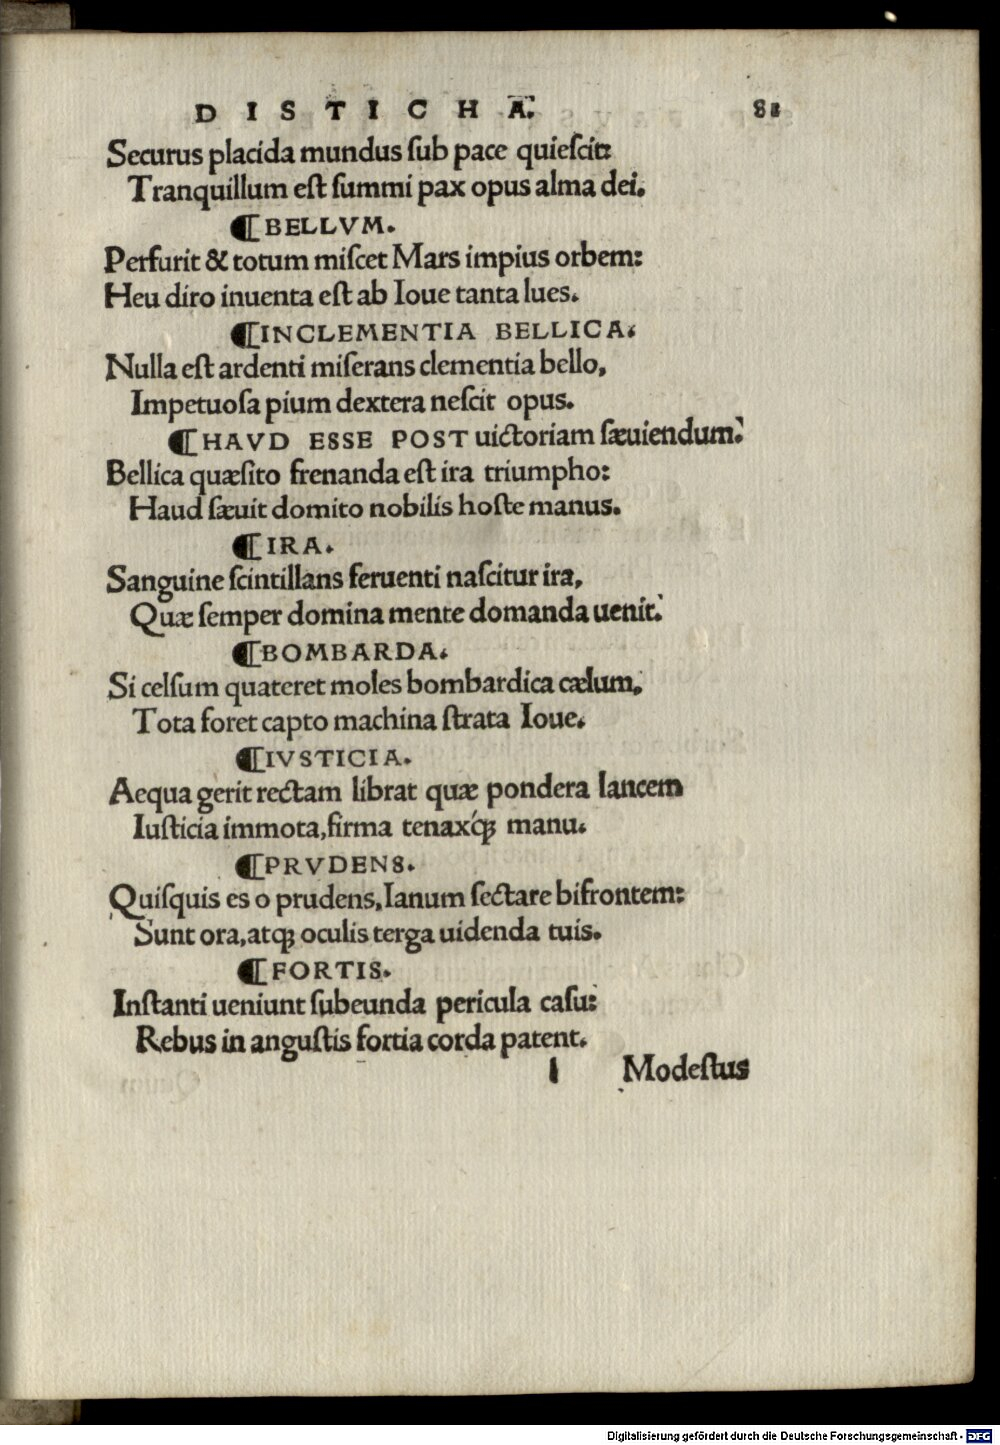 DISTICHA. 81
Securus placida mundus ſub pace quieſcit:
Tranquillum eſt ſummi pax opus alma dei.
¶BELLVM.
Perfurit & totum miſcet Mars impius orbem:
Heu diro inuenta eſt ab Ioue tanta lues.
¶INCLEMENTIA BELLICA.
Nulla eſt ardenti miſerans clementia bello,
Impetuoſa pium dextera neſcit opus.
¶HAVD ESSE POST uictoriam ſæuiendum.
Bellica quæſito frenanda eſt ira triumpho:
Haud ſæuit domito nobilis hoſte manus.
¶IRA.
Sanguine ſcintillans feruenti naſcitur ira,
Quæ ſemper domina mente domanda uenit.
¶BOMBARDA.
Si celſum quateret moles bombardica cælum,
Tota foret capto machina ſtrata Ioue.
¶IVSTICIA.
Aequa gerit rectam librat quæ pondera lancem
Iuſticia immota, firma tenaxq́; manu.
¶PRVDENS.
Quiſquis es o prudens, Ianum ſectare bifrontem:
Sunt ora, atq; oculis terga uidenda tuis.
¶FORTIS.
Inſtanti ueniunt ſubeunda pericula caſu:
Rebus in anguſtis fortia corda patent.
l Modeſtus
Digitalisierung gefördert durch die Deutsche Forschungsgemeinschaft - DFG